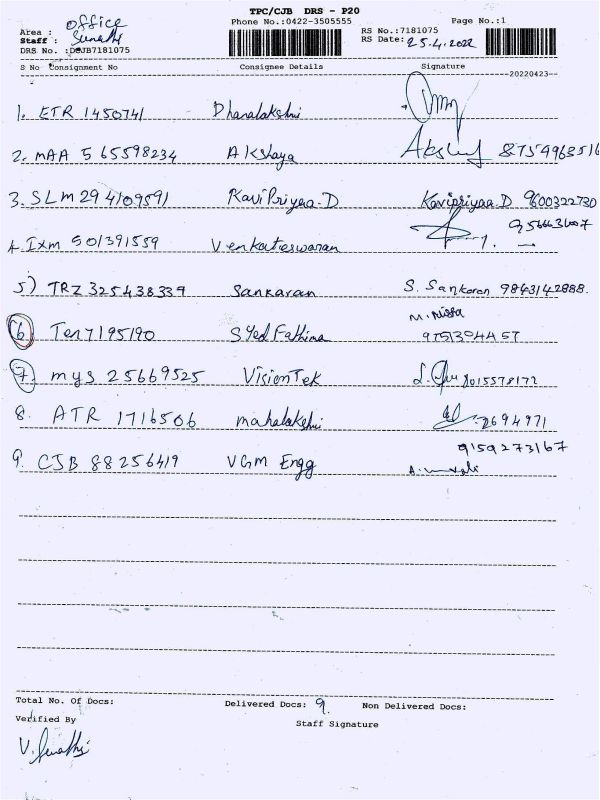 TPC/CJB DRS - P20
Phone No.:0422-3505555 Page No.:1
Area : office
Staff : Sumathi
RS No.:7181075
DRS No. :DCJB7181075
RS Date: 25.4.2022
S No Consignment No Consignee Details Signature
20220423
1. ETR 1450741 Dhanalakshmi
2. MAA 565598234 Akshaya 8754963516
3. SLM 294109591 KaviPriyaa.D Kavipriyaa.D 9600322730
4. Ixm 501391559 Venkateswaran 9566631007
5) TRZ 325438339 Sankaran S. Sankaran 9843142888.
M. Nissa
6. Ten 7195190 Syed Fathima 9751304457
7. mys 25669525 VisionTek 8015578172
8. ATR 1716506 mahalakshmi 2694971
9159273167
9. CJB 88256419 VGM Engg
Total No. Of Docs: Delivered Docs: 9. Non Delivered Docs:
Verified By Staff Signature